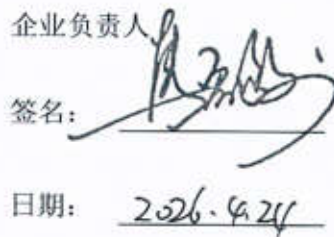 企业负责人
签名：
日期： 2026.4.24